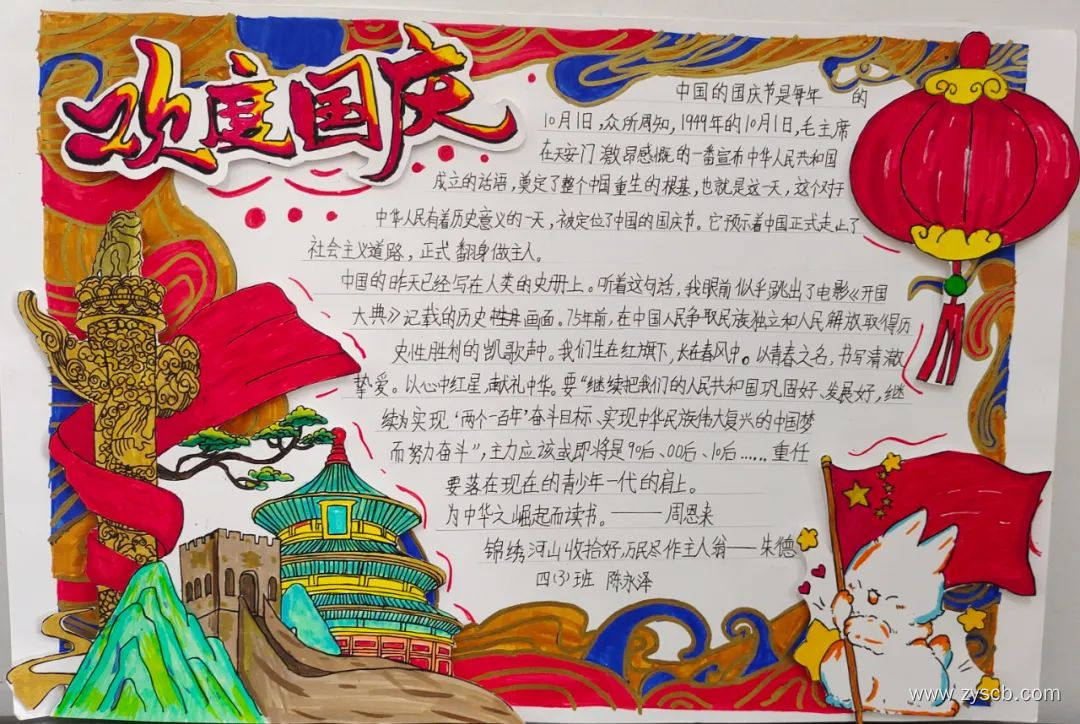 欢度国庆
中国的国庆节是每年 的
10月1日,众所周知,1949年的10月1日,毛主席
在天安门 激昂感慨 的一番宣布中华人民共和国
成立的话语,奠定了整个中国重生的根基,也就是这一天,这个对于
中华人民有着历史意义的一天,被定位了中国的国庆节。它预示着中国正式走上了
社会主义道路,正式 翻身做主人。
中国的昨天已经写在人类的史册上。听着这句话,我眼前似乎跳出了电影《开国
大典》记载的历史性 画面。75年前,在中国人民争取民族独立和人民解放取得历
史性胜利的凯歌声中。我们生在红旗下,长在春风中。以青春之名,书写清澈
挚爱。以心中红星,献礼中华。要“继续把我们的人民共和国巩固好、发展好,继
续为实现‘两个一百年’奋斗目标、实现中华民族伟大复兴的中国梦
而努力奋斗”,主力应该或即将是90后、00后、10后......重任
要落在现在的青少年一代的肩上。
为中华之崛起而读书。——周恩来
锦绣河山收拾好,万民尽作主人翁——朱德
四(3)班 陈永泽
www.zyscb.com